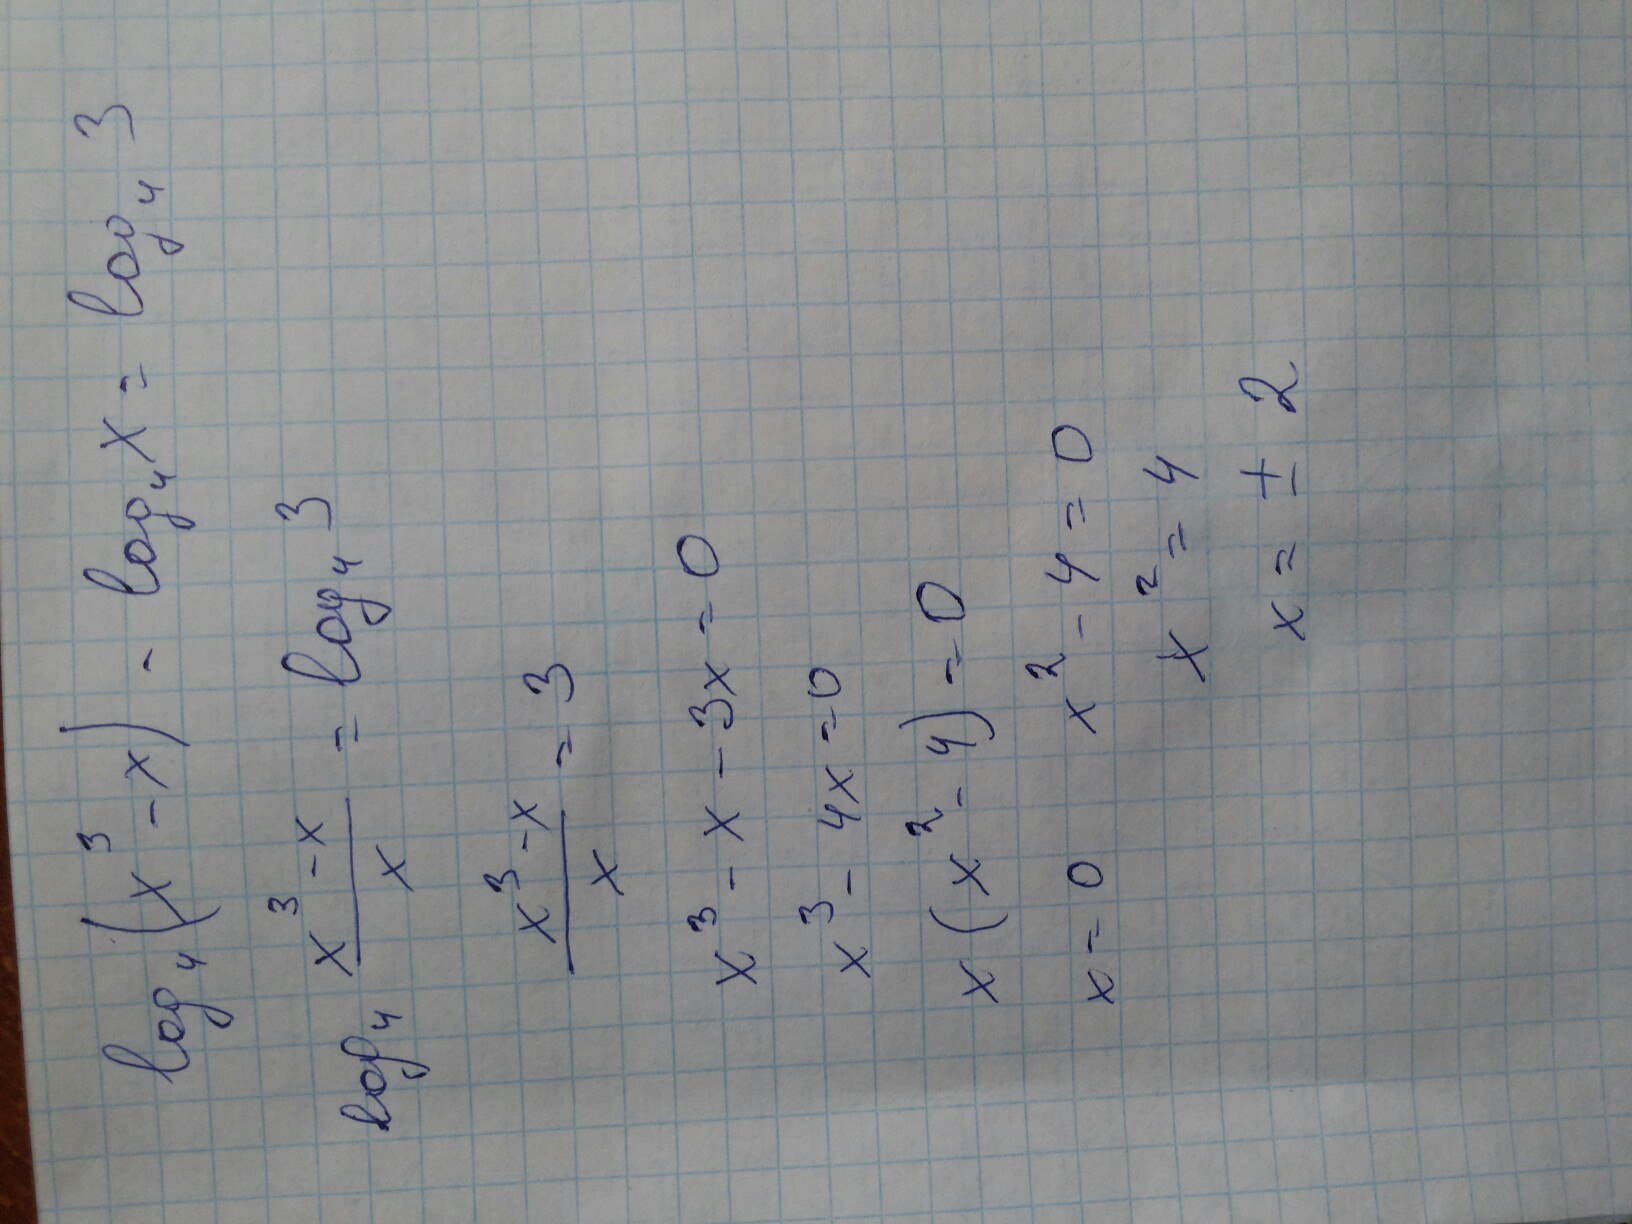 log₄(x³-x) - log₄x = log₄3
log₄ (x³-x)/x = log₄3
(x³-x)/x = 3
x³-x-3x=0
x³-4x=0
x(x²-4)=0
x=0 x²-4=0
x²=4
x=±2